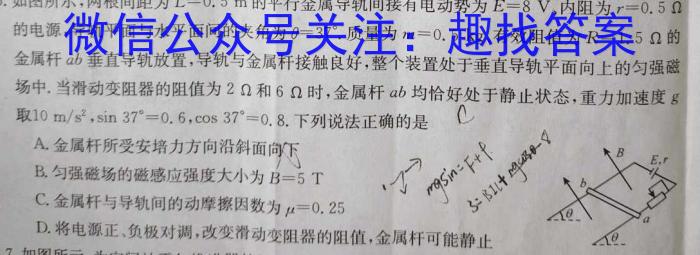 5.如图所示,两根间距为L=0.5 m的平行金属导轨间接有电动势为E=8 V、内阻为r=0.5 Ω
的电源,导轨平面与水平面间的夹角为θ=37°.质量为m=0. 有效阻值为R= .5 Ω的
微信公众号关注：趣找答案
金属杆ab垂直导轨放置,导轨与金属杆接触良好,整个装置处于垂直导轨平面向上的匀强磁
场中.当滑动变阻器的阻值为2 Ω和6 Ω时,金属杆ab均恰好处于静止状态,重力加速度g
取10 m/s²,sin 37°=0.6,cos 37°=0.8.下列说法正确的是
C
A.金属杆所受安培力方向沿斜面向下
B.匀强磁场的磁感应强度大小为B=5 T
C.金属杆与导轨间的动摩擦因数为μ=0.25
D.将电源正、负极对调,改变滑动变阻器的阻值,金属杆可能静止
mgsin=F+f.
B
E,r
b
a
θ
θ
7.如图所示